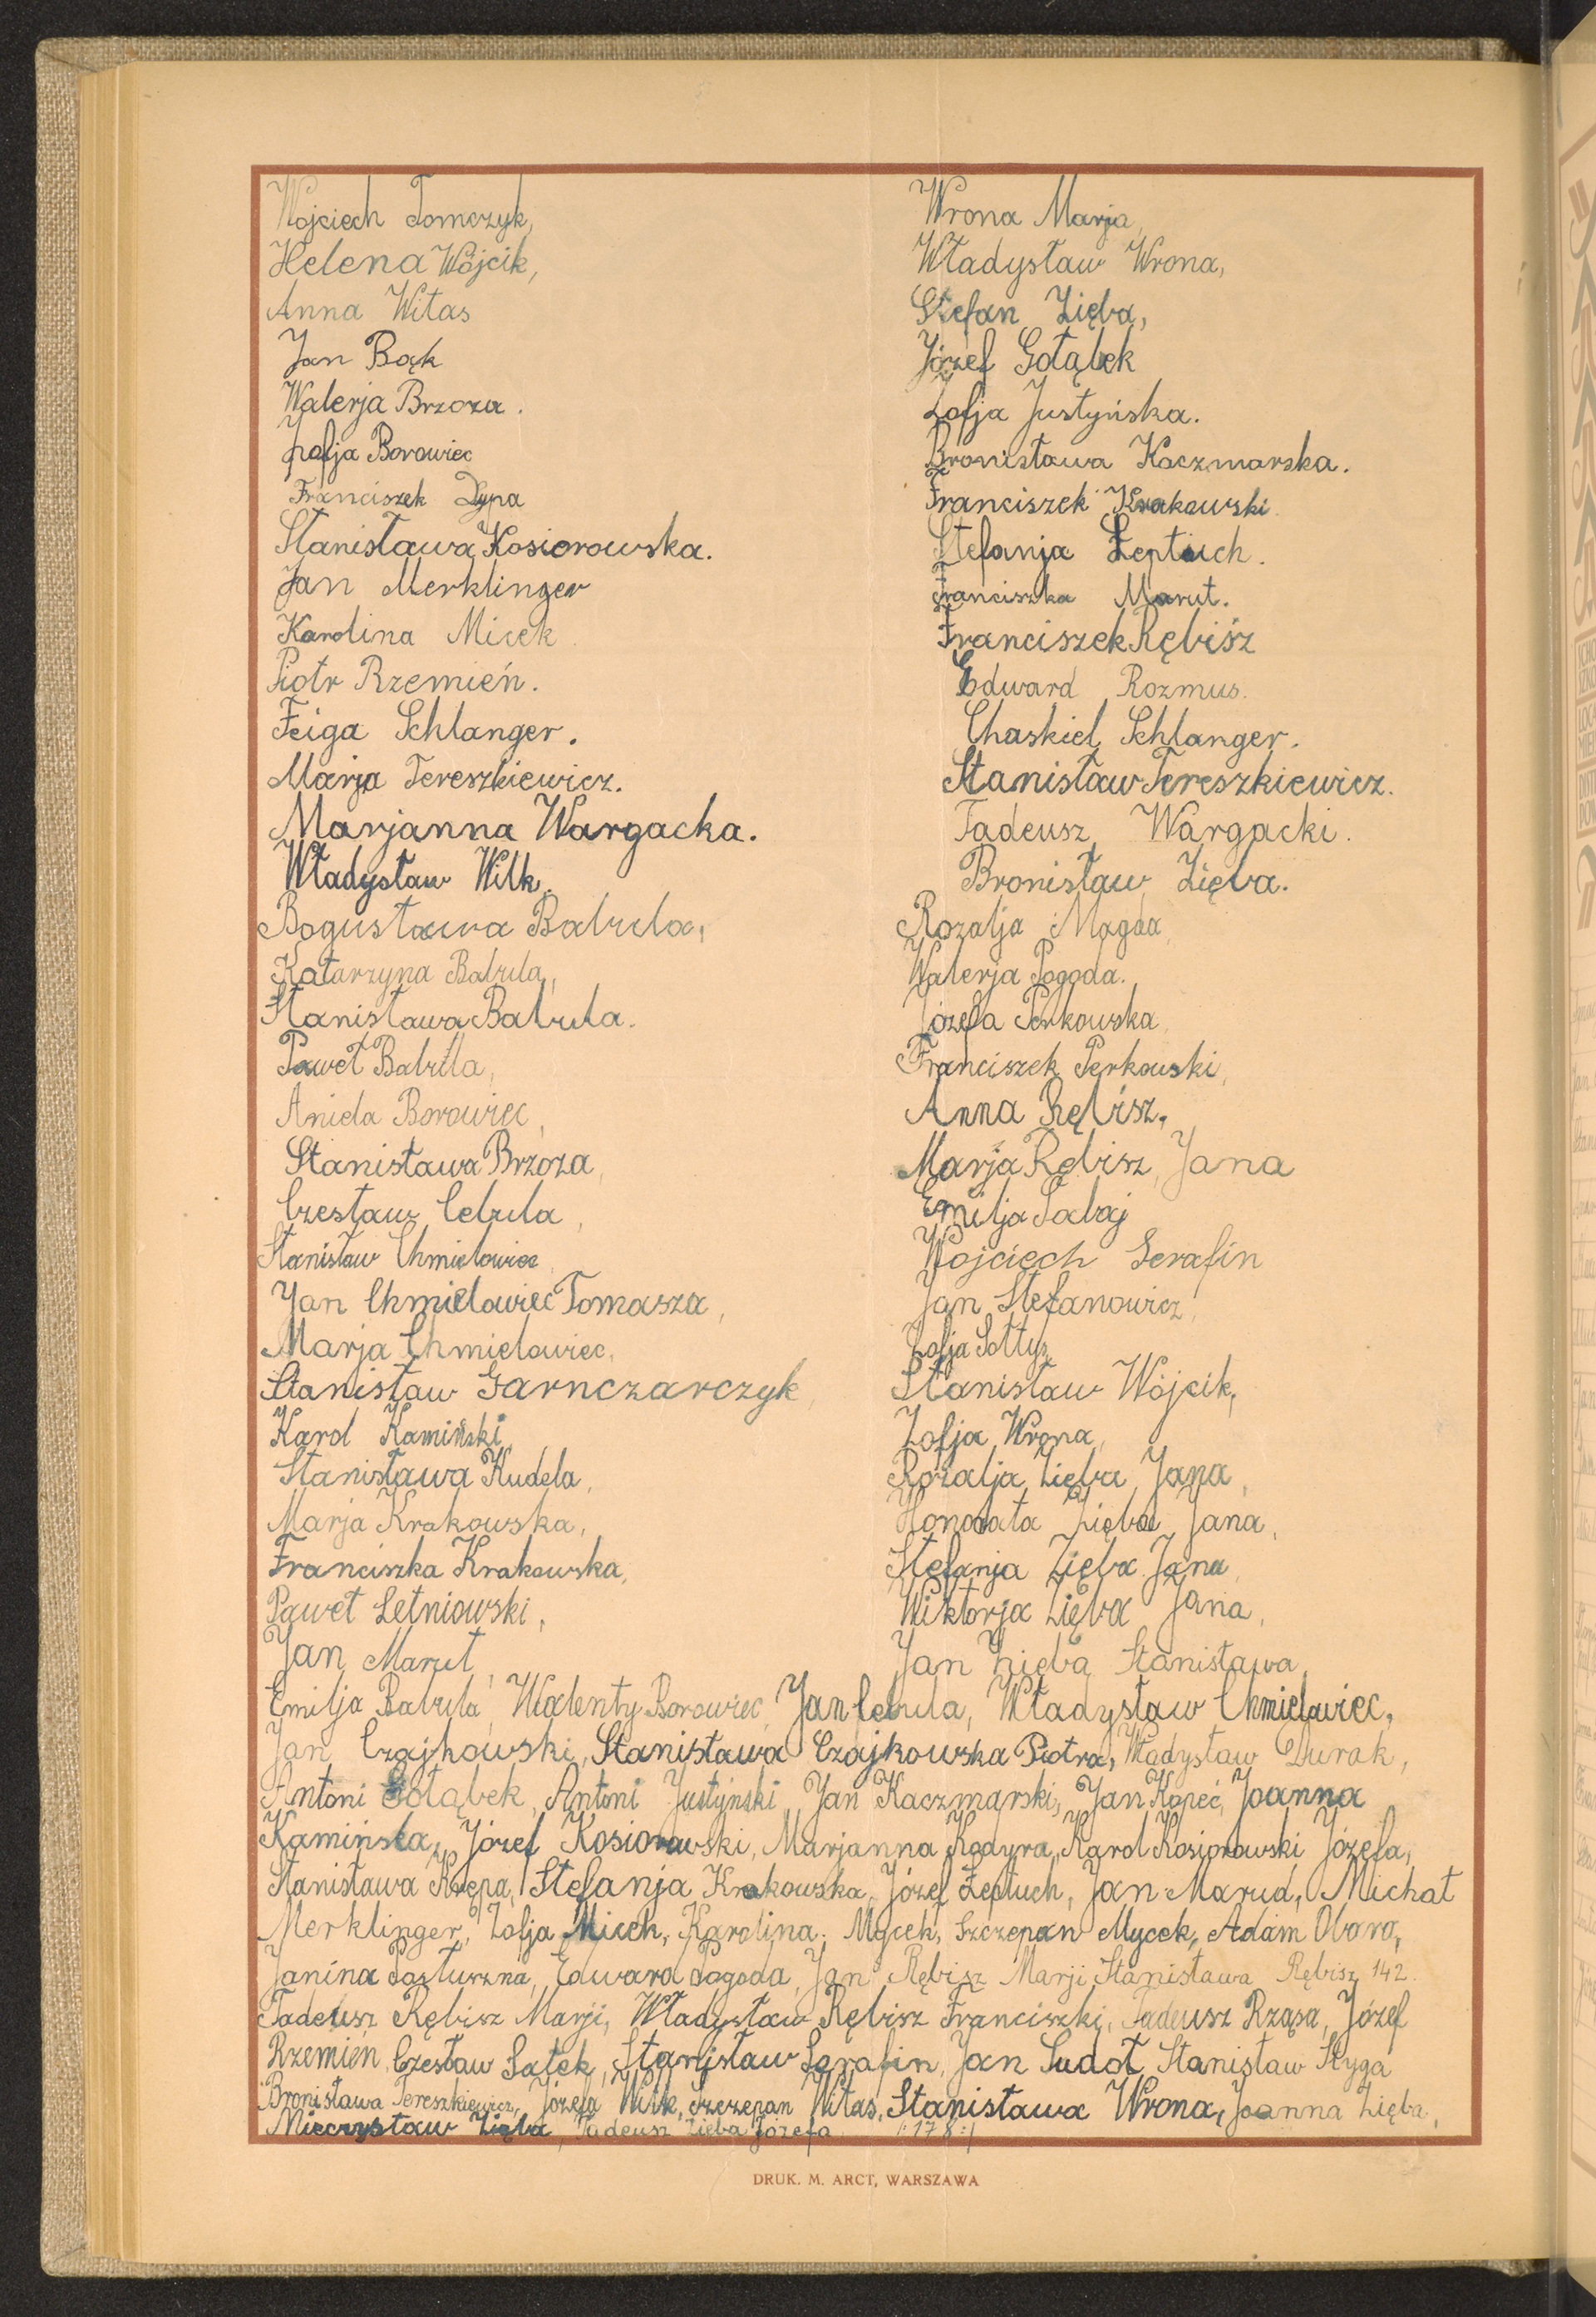 Wojciech Tomczyk,
Helena Wójcik,
Anna Witas
Jan Bąk
Walerja Brzoza.
Zofja Borowiec
Franciszek Dypa
Stanisława Kosiorowska.
Jan Merklinger
Karolina Micek
Piotr Rzemień.
Feiga Schlanger.
Marja Tereszkiewicz.
Marjanna Wargacka.
Władysław Wilk.
Bogusława Babula,
Katarzyna Babula,
Stanisława Babula.
Paweł Babula,
Aniela Borowiec,
Stanisława Brzoza,
Czesław Cebula,
Stanisław Chmielowiec,
Jan Chmielowiec Tomasza,
Marja Chmielowiec,
Stanisław Garnczarczyk,
Karol Kamiński,
Stanisława Kudela,
Marja Krakowska,
Franciszka Krakowska,
Paweł Letniowski,
Jan Marut,
Wrona Marja,
Władysław Wrona,
Stefan Zięba,
Józef Gołąbek
Zofja Justyńska.
Bronisława Kaczmarska.
Franciszek Krakowski.
Stefanja Łeptuch.
Franciszka Marut.
Franciszek Rębisz
Edward Rozmus.
Chaskiel Schlanger.
Stanisław Tereszkiewicz.
Tadeusz Wargacki.
Bronisław Zięba.
Rozalja Magda,
Walerja Pogoda.
Józefa Perkowska,
Franciszek Perkowski,
Anna Rębisz,
Marja Rębisz, Jana
Emilja Sabaj
Wojciech Serafin
Jan Stefanowicz,
Zofja Sołtys,
Stanisław Wójcik,
Zofja Wrona,
Rozalja Zięba Jana,
Honorata Zięba Jana,
Stefanja Zięba Jana,
Wiktorja Zięba Jana,
Jan Zięba Stanisława,
Emilja Babula, Walenty Borowiec, Jan Cebula, Władysław Chmielowiec,
Jan Czajkowski, Stanisława Czajkowska Piotra, Władysław Durak,
Antoni Gołąbek, Antoni Justyński, Jan Kaczmarski, Jan Kopeć, Joanna
Kamińska, Józef Kosiorowski, Marjanna Kodyra, Karol Kosiorowski Józefa,
Stanisława Krępa, Stefanja Krakowska, Józef Łeptuch, Jan Marud, Michał
Merklinger, Zofja Micek, Karolina Mycek, Szczepan Mycek, Adam Obara,
Janina Pastuszna, Edward Pogoda, Jan Rębisz Marji, Stanisława Rębisz 142.
Tadeusz Rębisz Marji, Władysław Rębisz Franciszki, Tadeusz Rząsa, Józef
Rzemień, Czesław Sałek, Stanisław Serafin, Jan Sudoł Stanisław Styga
Bronisława Tereszkiewicz, Józefa Wilk, Szczepan Witas, Stanisława Wrona, Joanna Zięba,
Mieczysław Zięba, Tadeusz Zięba Józefa /:178:/
DRUK. M. ARCT, WARSZAWA